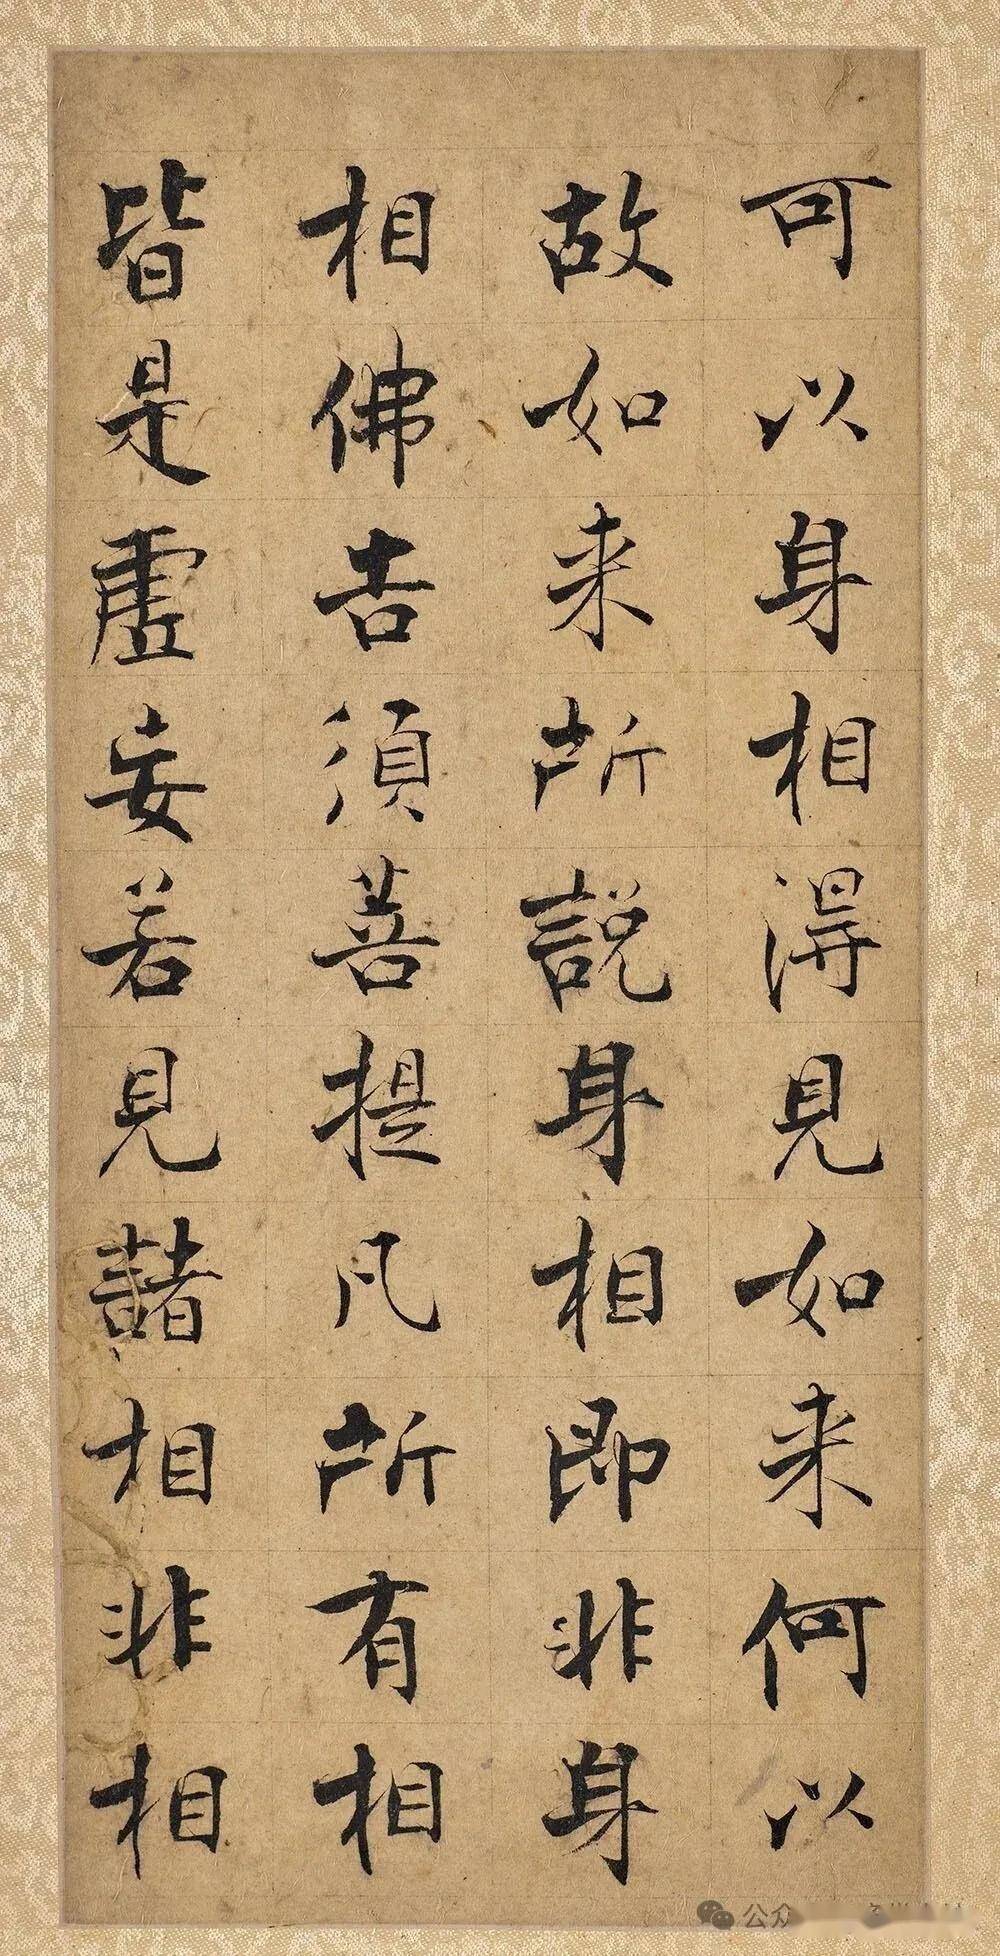 可以身相淂見如来何以
故如来所說身相即非身
相佛告須菩提凡所有相
皆是虛妄若見諸相非相
公众